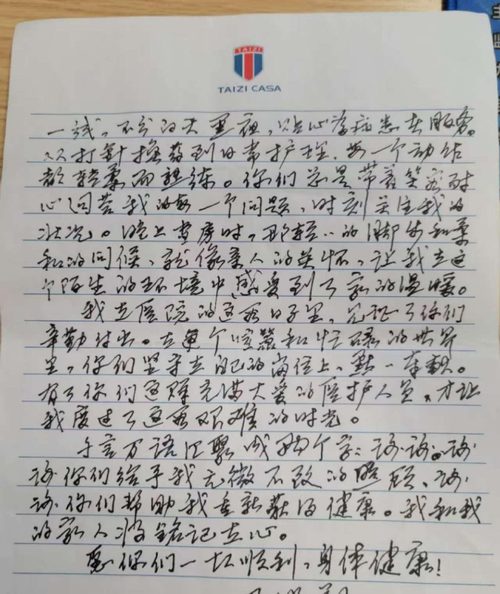 TAIZI
TAIZI CASA
一线，不分白天黑夜，贴心为病患者服务。
从打针换药到日常护理，每一个动作
都轻柔而熟练。你们总是带着笑容耐
心回答我的每一个问题，时刻关注我的
状况。晚上查房时，那轻轻的脚步和柔
和的问候，就像亲人的关怀，让我在这
个陌生的环境中感受到了家的温暖。
我在医院的这段日子里，见证了你们
辛勤付出。在这个喧嚣和忙碌的世界
里，你们坚守在自己的岗位上，
有了你们这阵充满大爱的医护人员，才让
我度过了这段艰难的时光。
千言万语汇聚成两个字：谢谢。谢
谢你们给予我无微不致的照顾，谢
谢你们帮助我重新获得健康。我和我
的家人将铭记在心。
愿你们一切顺利，身体健康！